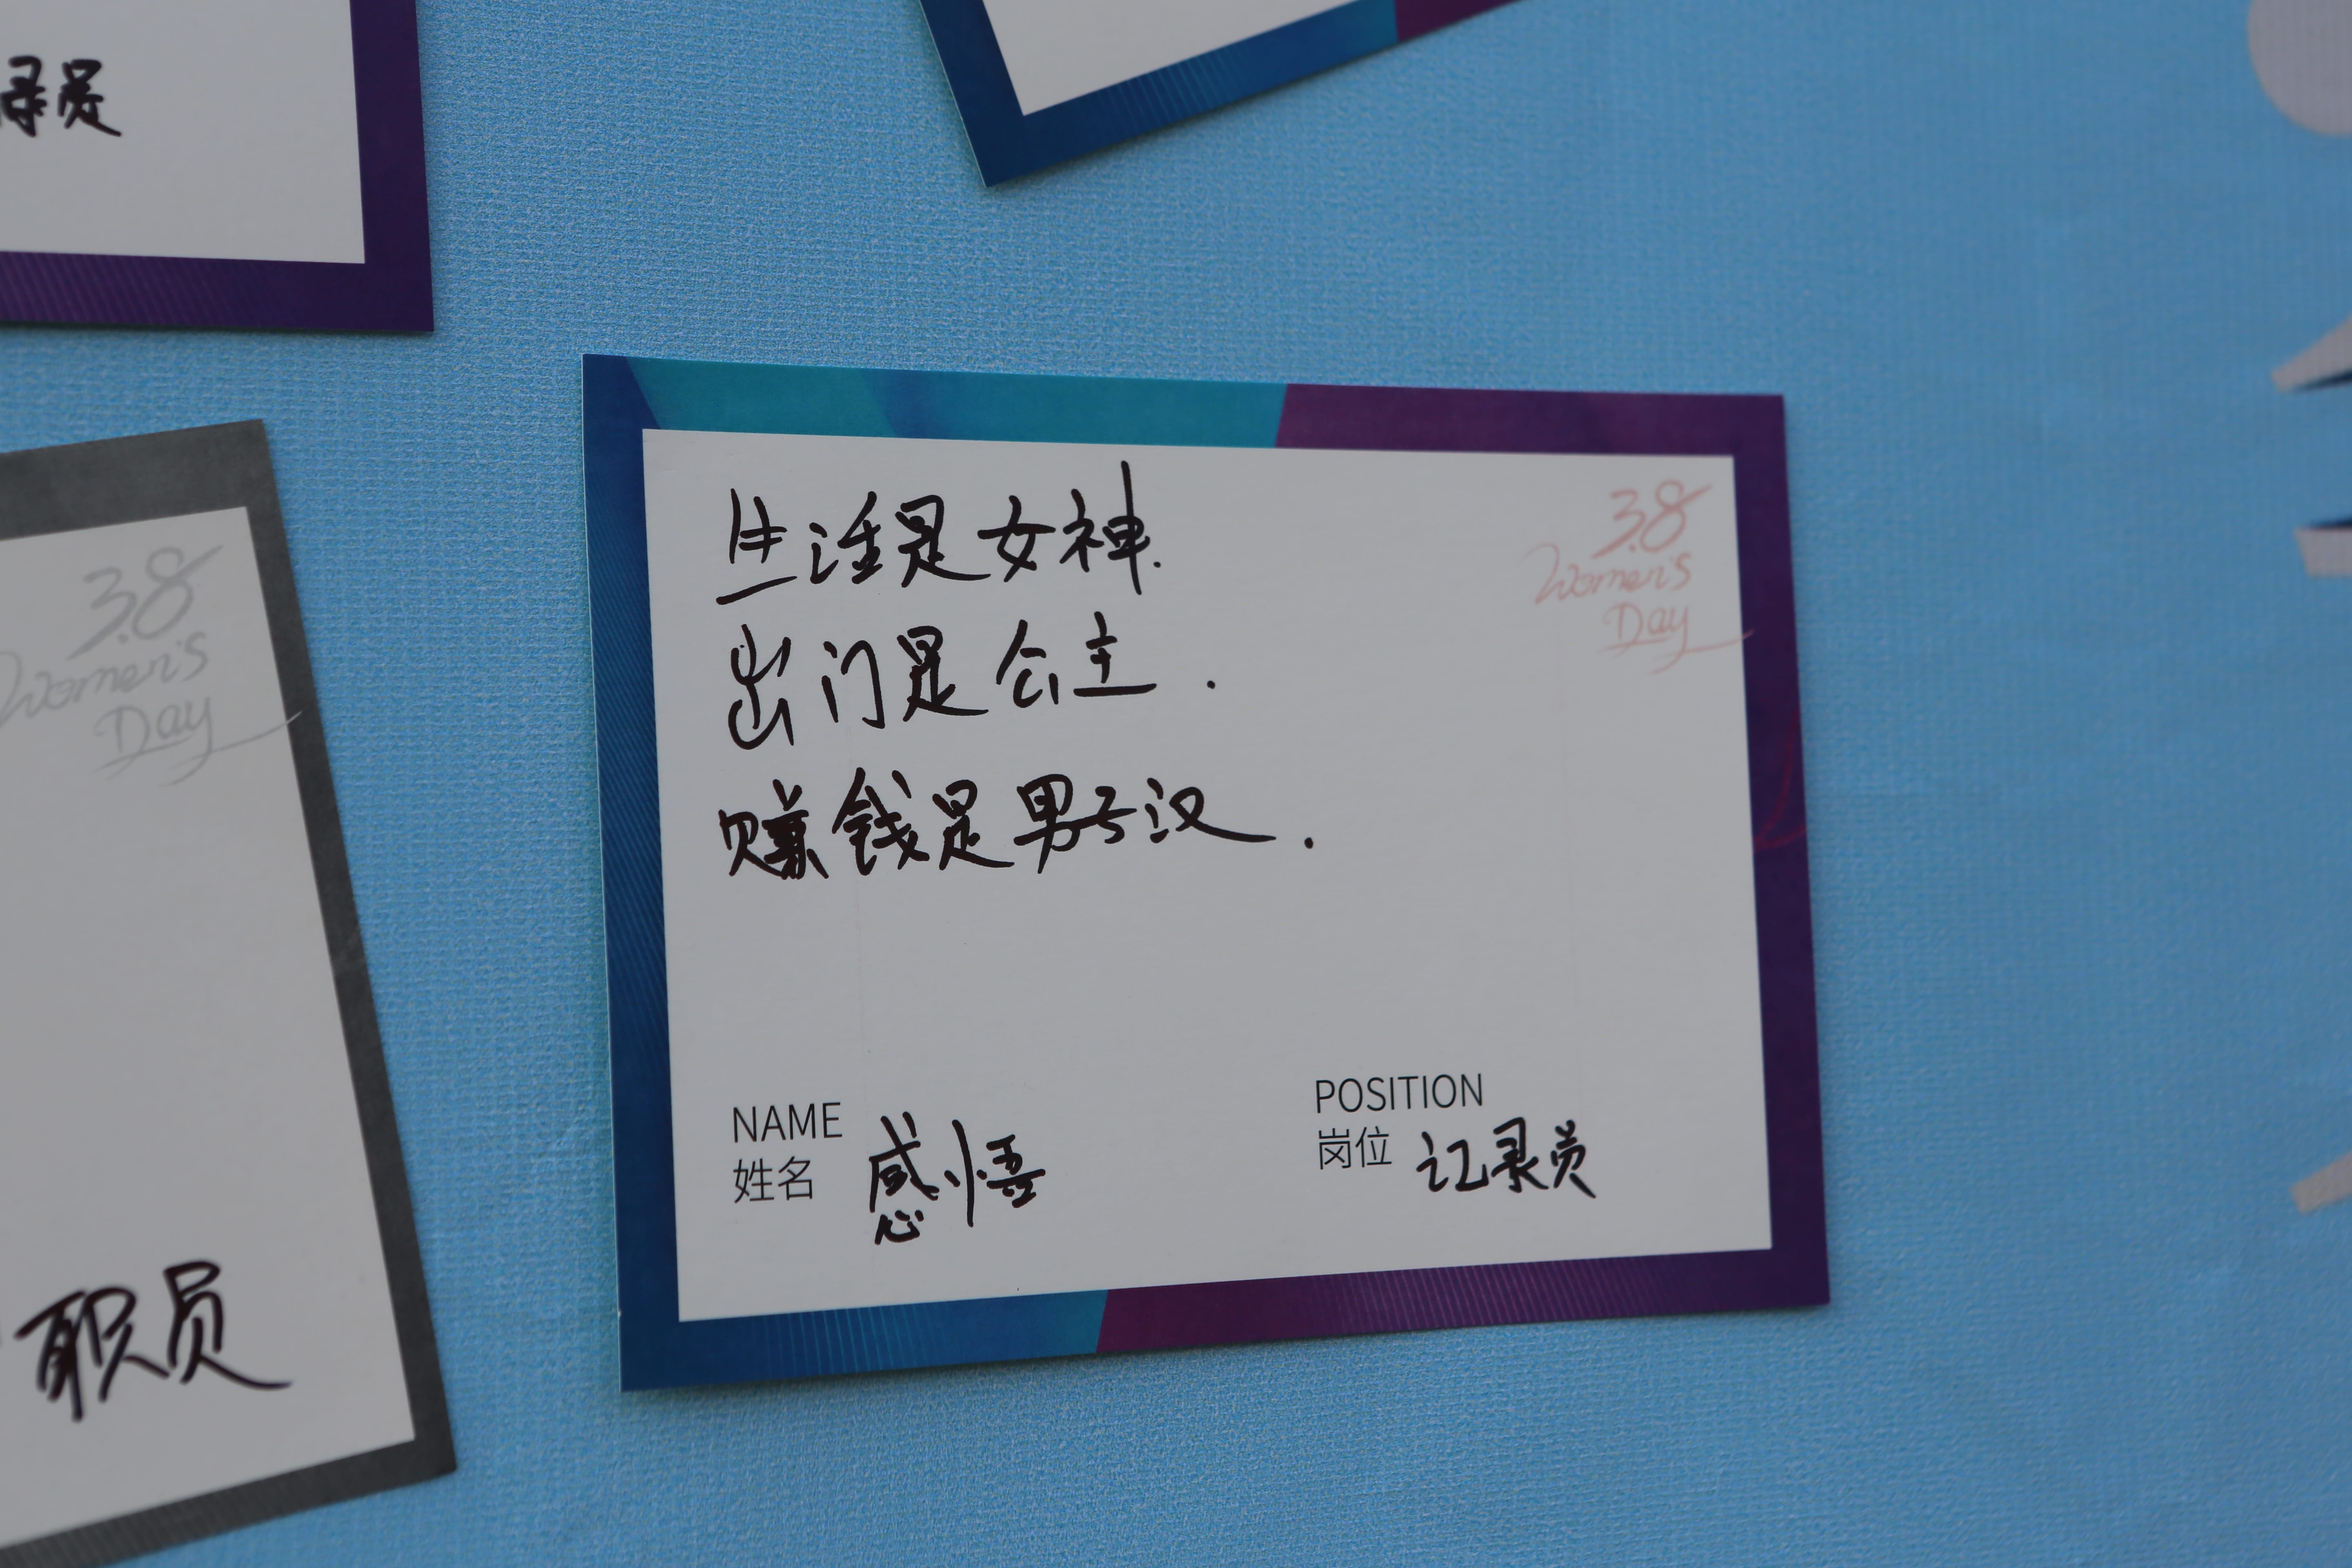 录员
生活是女神.
出门是公主.
赚钱是男子汉.
3.8
Women's
Day
NAME
姓名 感悟
POSITION
岗位 记录员
3.8
Women's
Day
职员